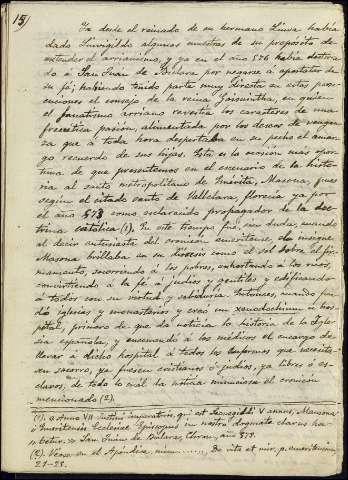 15)
Ya desde el reinado de su hermano Liuva había
dado Leuvigildo algunas muestras de su propósito de
extender el arrianismo, y ya en el año 576 había desterra-
do á San Juan de Biclara por negarse á apostatar de
su fé, habiendo tenido parte muy directa en estas perse-
cuciones el consejo de la reina Goisuintha, en quien
el fanatismo arriano revestía los caracteres de una
frenética pasión, alimentada por los deseos de vengan-
za que á toda hora despertaba en su pecho el amar-
go recuerdo de sus hijas. Esta es la ocasión más opor-
tuna de que presentemos en el escenario de la histo-
ria al santo metropolitano de Mérita, Masona, pues
según el citado santo de Vallclara, florecía ya por
el año 573 como esclarecido propagador de la doc-
trina católica (1). En este tiempo fué, sin duda, cuando
al decir entusiasta del cronicon emeritense, do insigne
Masona brillaba en su diócesis como el sol sobre el fir-
mamento, socorriendo á los pobres, exhortando á los ricos,
convirtiendo á la fé á judíos y gentiles y edificando
á todos con su virtud y sabiduría. Entonces, mandó fun-
dó iglesias y monasterios y creo un xenodochium u hos-
pital, primero de que da noticia la historia de la Igle-
sia española, y encargando á los médicos el encargo de
llevar á dicho hospital á todos los enfermos que necesita-
sen socorro, ya fuesen cristianos ó judíos, ya libres ó es-
clavos, de todo lo cuál da noticia minuciosa el cronicon
mencionado (2).
(1). « Anno VII Justini imperatoris, qui est Leovegildi V annus, Mausona
« Emeritensis Ecclesiae Episcopus in nostro dogmate clarus ha-
betur. » San Juan de Biclara, Chron., año 573.
(2). Vease en el Apéndice, núm. De vita et mir. p. emeritensium
21-22.